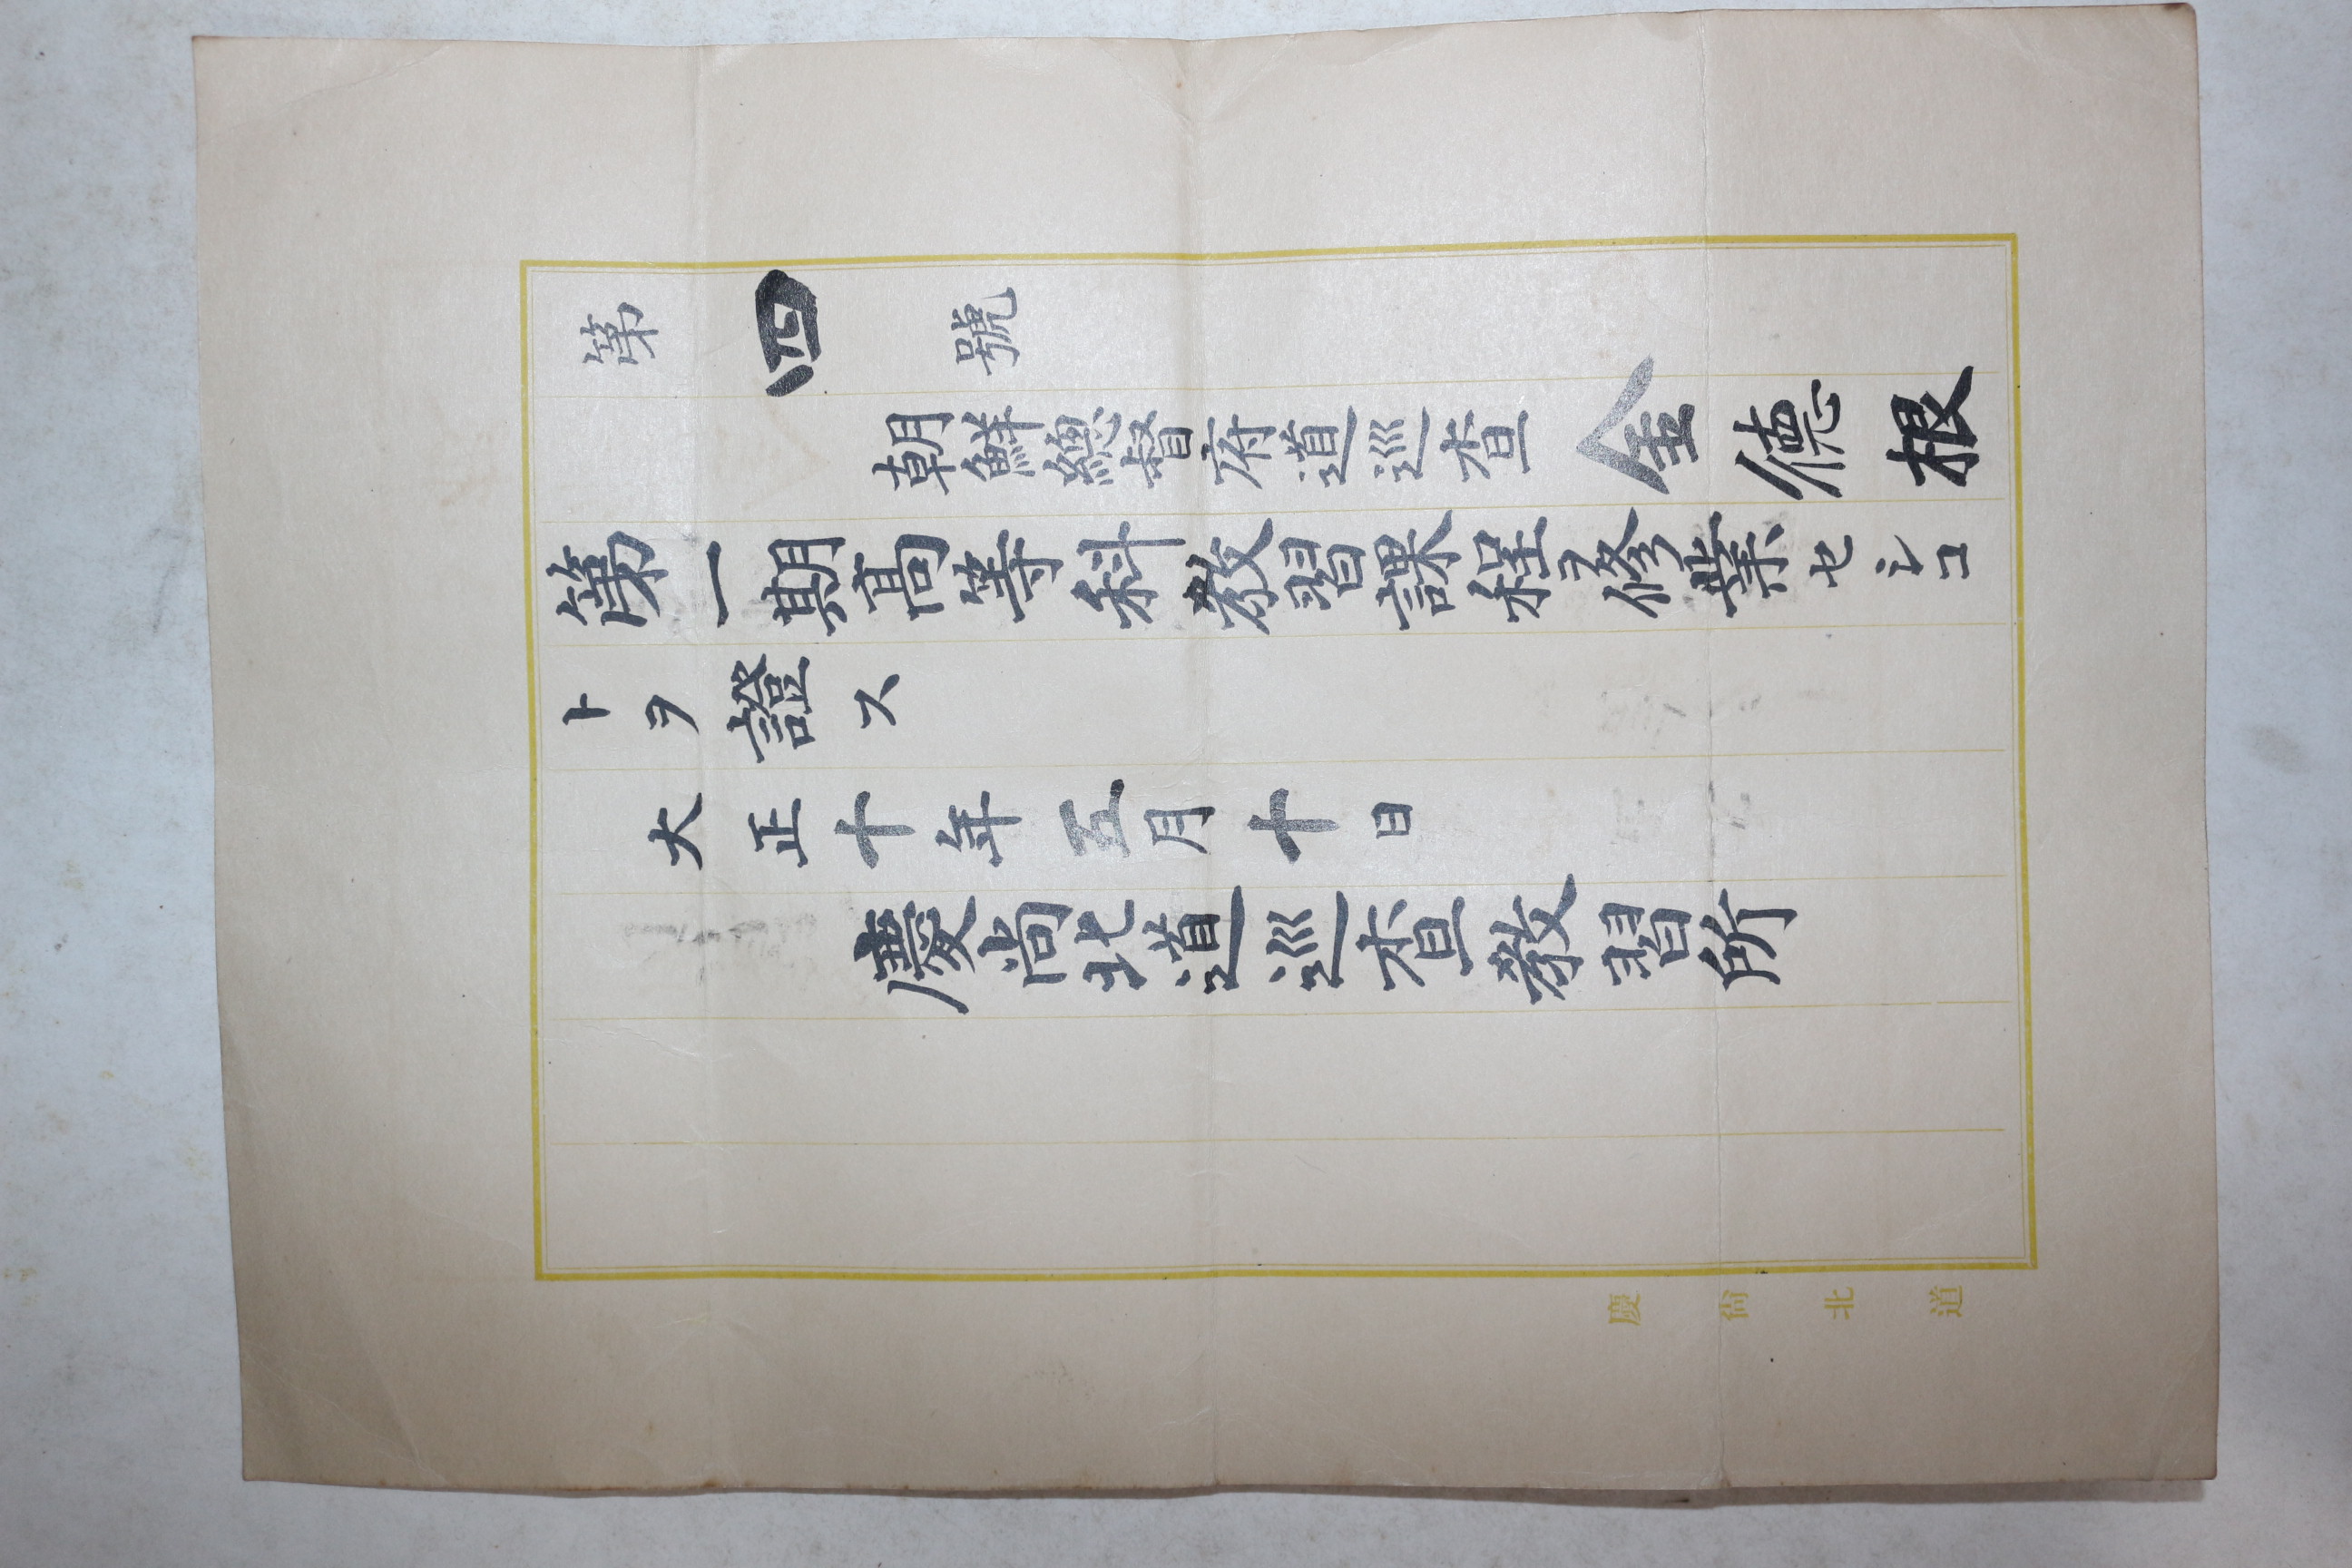 第四號
朝鮮總督府道巡査 金德根
第一期髙等科教習課程ヲ修業セシコ
トヲ證ス
大正十年五月十日
慶尚北道巡査教習所
慶尙北道